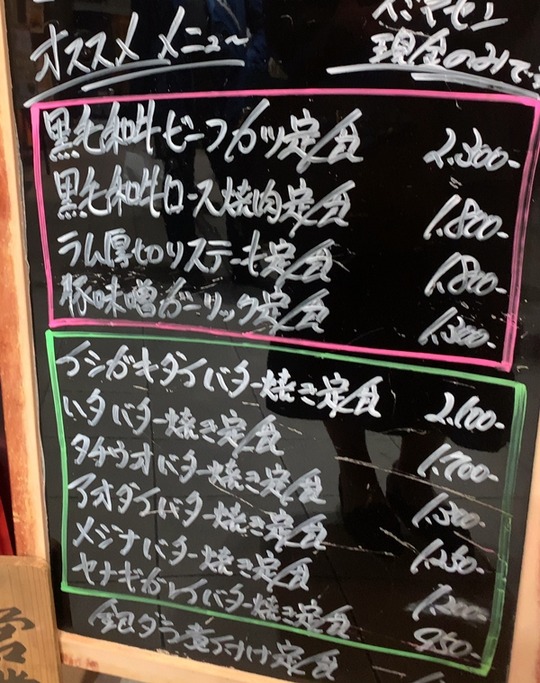 オススメ メニュー
現金のみで
黒毛和牛ビーフカツ定食 2.300-
黒毛和牛ロース焼肉定食 1.800-
ラム厚切りステーキ定食 1.800-
豚味噌ガーリック定食 1.300-
イシガキダイバター焼き定食 2.600-
ハタバター焼き定食 1.700-
タチウオバター焼き定食 1.300-
アオダイバター焼き定食 1.250-
メジナバター焼き定食 1.200-
ヤナギガレイバター焼き定食 950-
銀ダラ煮付け定食